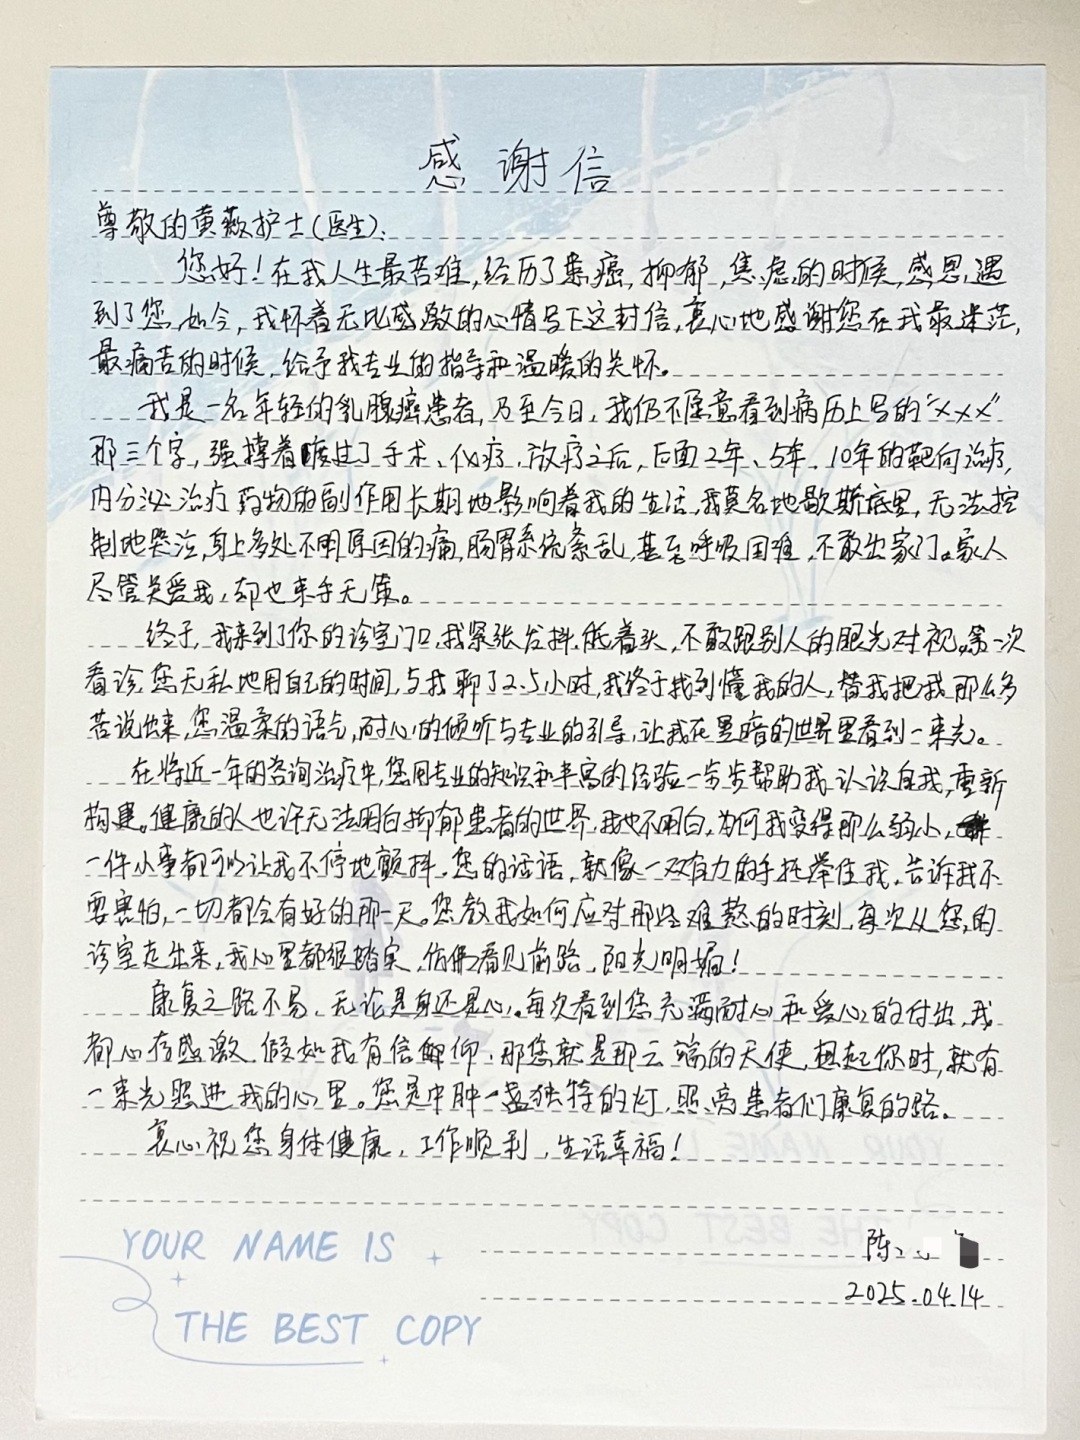 感谢信
尊敬的黄薇护士(医生)、
您好！在我人生最苦难，经历了患癌，抑郁，焦虑的时候，感恩遇
到了您，如今，我怀着无比感激的心情写下这封信，衷心地感谢您在我最迷茫，
最痛苦的时候，给予我专业的指导和温暖的关怀。
我是一名年轻的乳腺癌患者，乃至今日，我仍不愿意看到病历上写的“×××”
那三个字，强撑着度过了手术、化疗、放疗之后，后面2年、5年、10年的靶向治疗，
内分泌治疗药物的副作用长期地影响着我的生活，我莫名地歇斯底里，无法控
制地哭泣，身上多处不明原因的痛，肠胃系统紊乱，甚至呼吸困难，不敢出家门。家人
尽管关爱我，却也束手无策。
终于，我来到了你的诊室门口，我紧张发抖，低着头，不敢跟别人的眼光对视，第一次
看诊，您无私地用自己的时间，与我聊了2.5小时，我终于找到懂我的人，替我把我那么多
苦说出来，您温柔的语气，耐心的倾听与专业的引导，让我在黑暗的世界里看到一束光。
在将近一年的咨询治疗中，您用专业的知识和丰富的经验一步步帮助我，认识自我，重新
构建。健康的人也许无法明白抑郁患者的世界，我也不明白，为何我变得那么弱小，
一件小事都可以让我不停地颤抖，您的话语，就像一双有力的手托举住我，告诉我不
要害怕，一切都会有好的那一天。您教我如何应对那些难熬的时刻，每次从您的
诊室走出来，我心里都很踏实，仿佛看见前路，阳光明媚！
康复之路不易，无论是身还是心。每次看到您充满耐心和爱心的付出，我
都心存感激，假如我有信仰，那您就是那云端的天使，想起你时，就有
一束光照进我的心里。您是中肿一盏独特的灯，照亮患者们康复的路。
衷心祝您身体健康，工作顺利，生活幸福！
YOUR NAME IS
THE BEST COPY
陈
2025.04.14